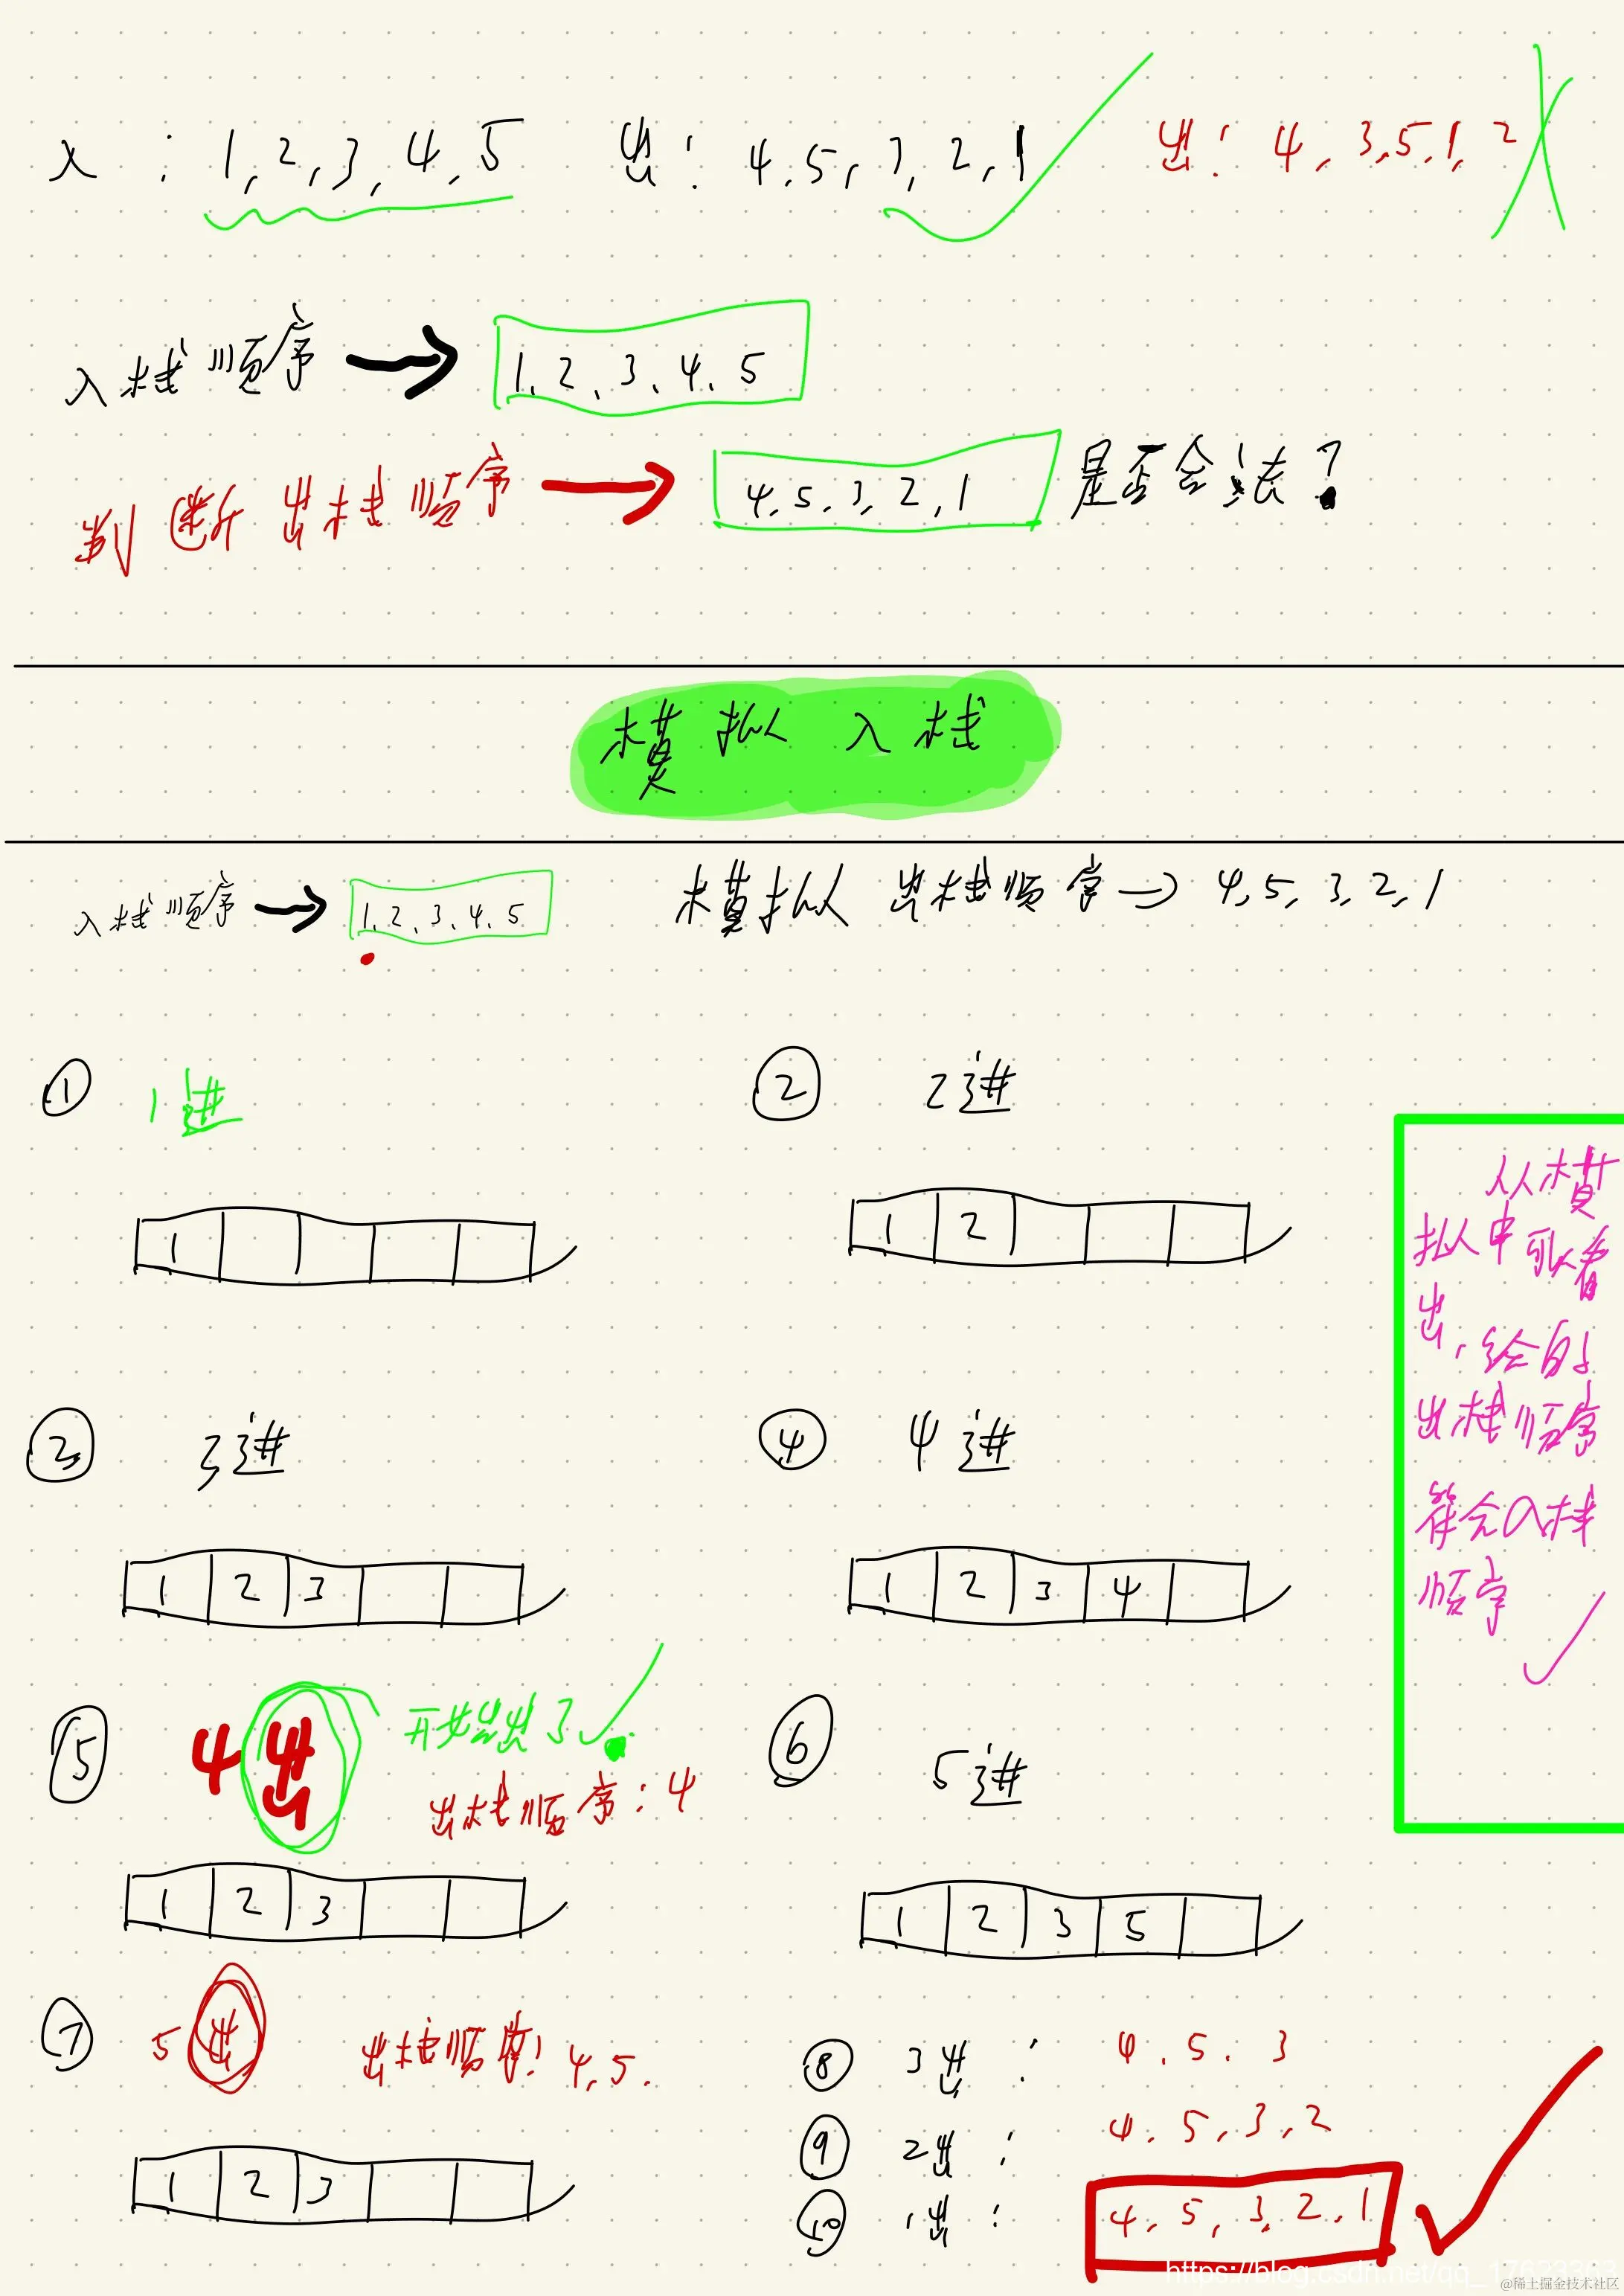 入：1,2,3,4,5 出：4,5,3,2,1 出：4,3,5,1,2
入栈顺序→ 1,2,3,4,5
判断出栈顺序→ 4,5,3,2,1 是否合法？
模拟入栈
入栈顺序→ 1,2,3,4,5 模拟出栈顺序→ 4,5,3,2,1
① 1进 ② 2进
1
1 2
从模
拟中可以看
出，给的
出栈顺序
符合入栈
顺序
③ 3进 ④ 4进
1 2 3
1 2 3 4
⑤ 4出 开始出了
出栈顺序：4
⑥ 5进
1 2 3
1 2 3 5
⑦ 5出 出栈顺序：4,5.
1 2 3
⑧ 3出： 4,5,3
⑨ 2出： 4,5,3,2
⑩ 1出： 4,5,3,2,1
@稀土掘金技术社区